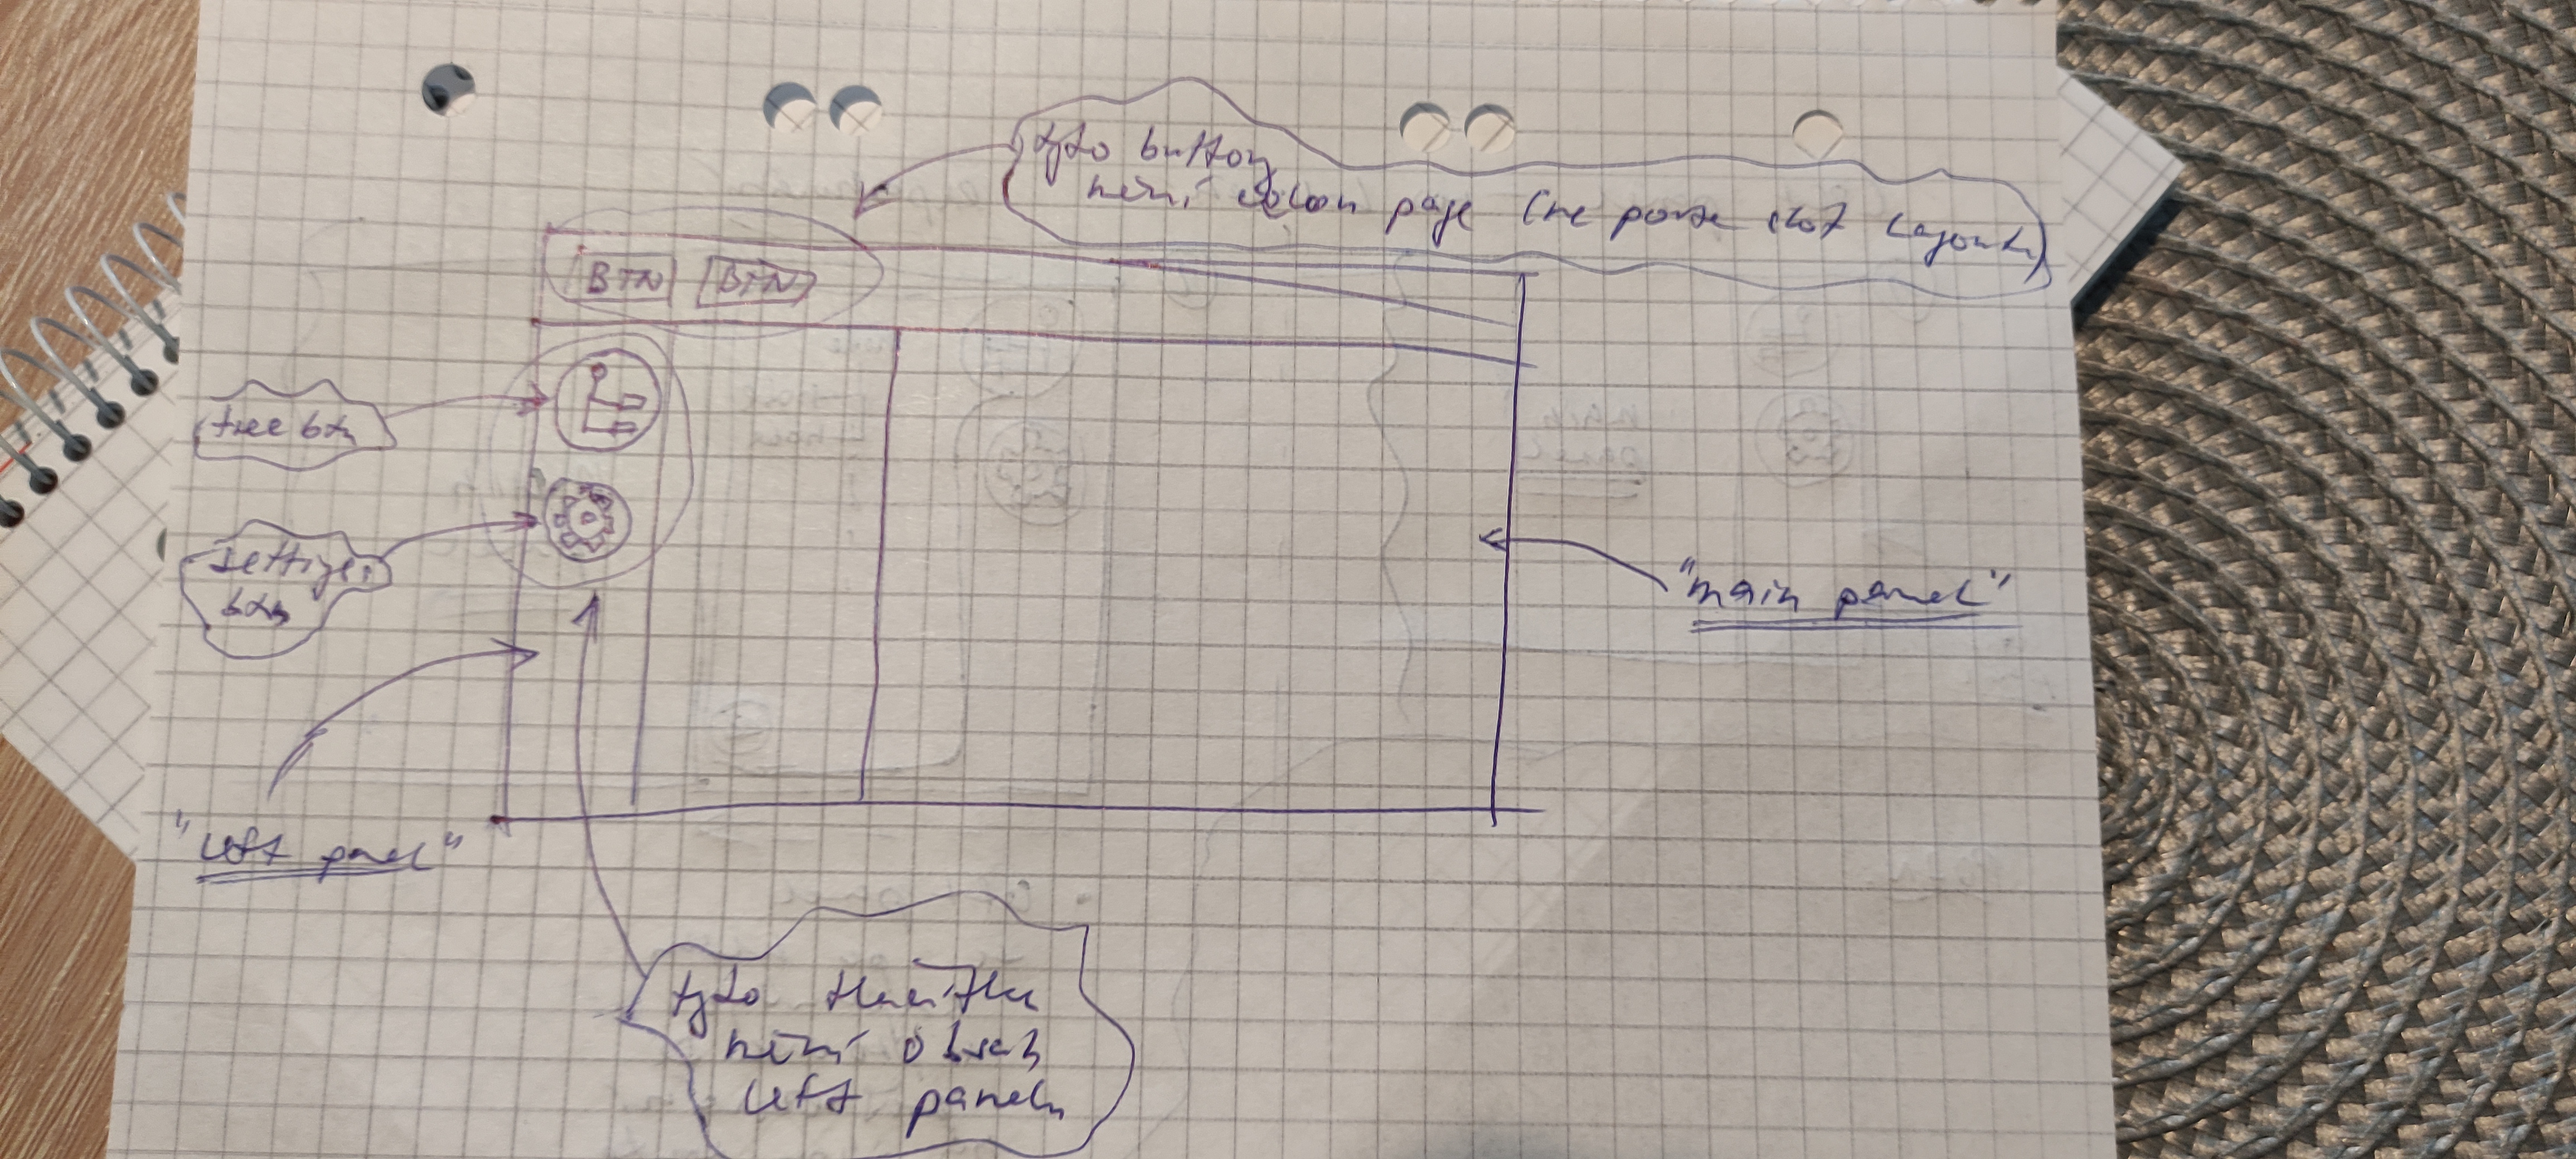 tyto buttony
mění celou page (ne pouze slot layoutu)
BTN BTN
tree btn
settings
btn
"main panel"
"left panel"
tyto tlačítka
mění obsah
left panelu